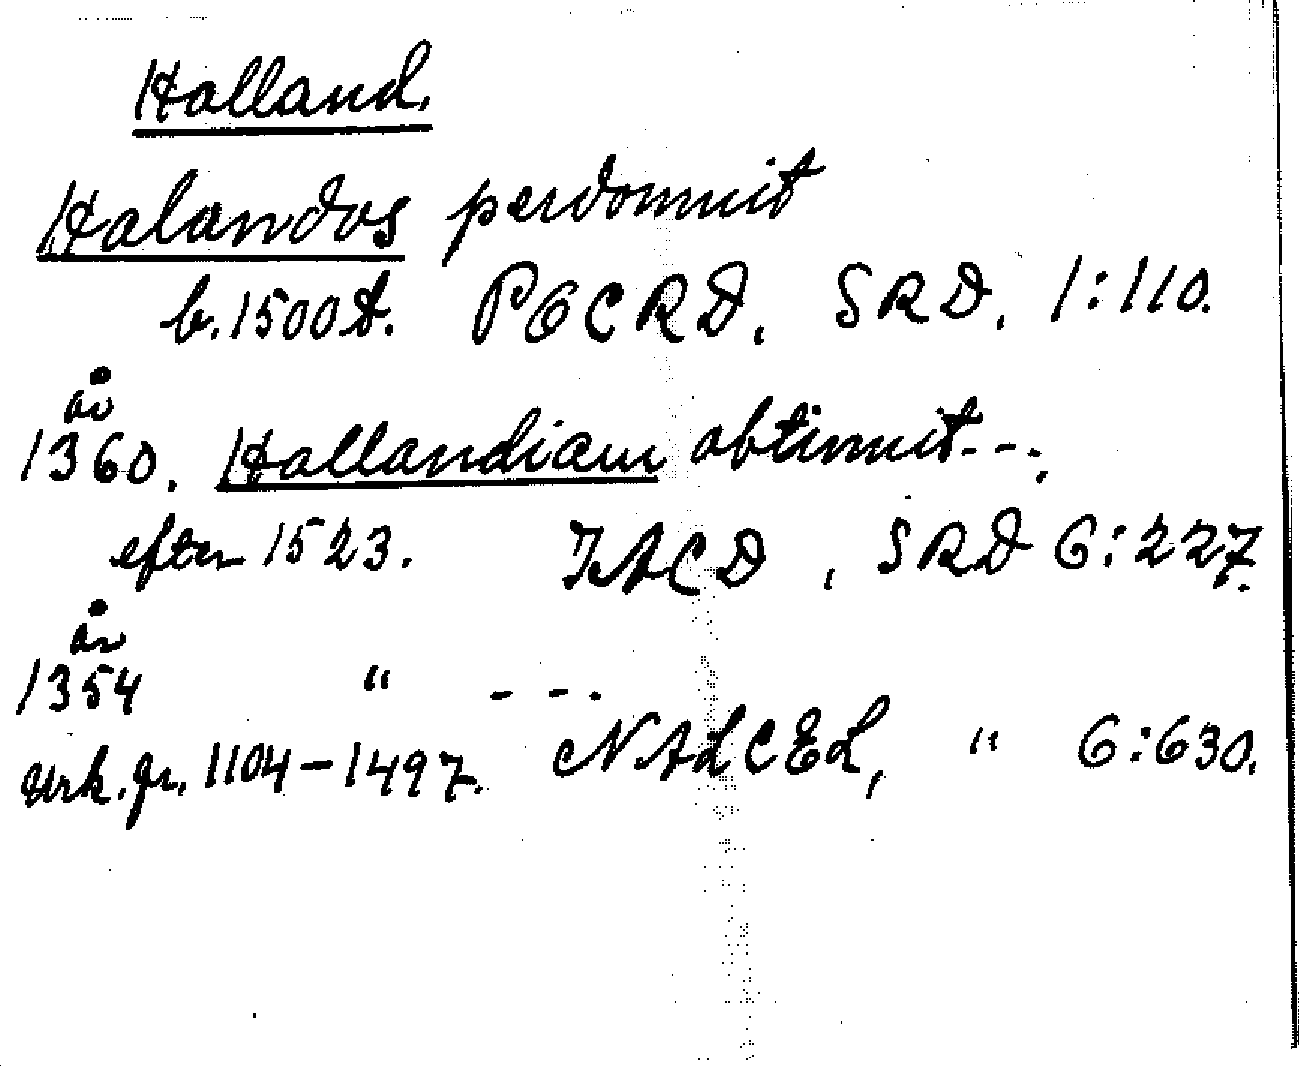 Halland.
Halandos perdomuit
b. 1500 t. POCRD, SRD, 1:110.
år
1360. Hallandiam obtinuit - - -,
efter 1523. IACD, SRD 6:227.
år
1354 " - - -
urk. fr. 1104-1497. NALCEL, " 6:630.